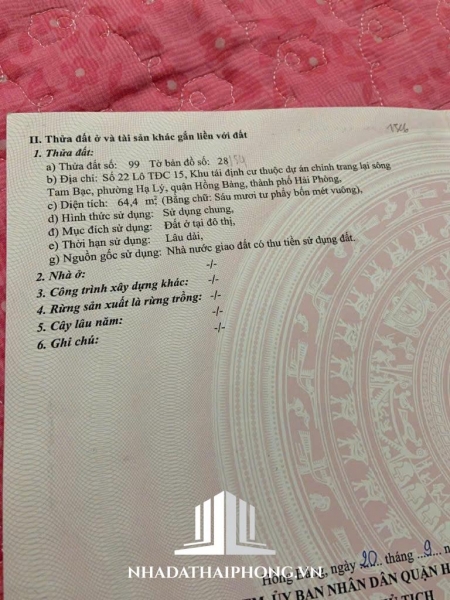 II. Thửa đất ở và tài sản khác gắn liền với đất
1. Thửa đất:
a) Thửa đất số: 99 Tờ bản đồ số: 28
b) Địa chỉ: Số 22 Lô TĐC 15, Khu tái định cư thuộc dự án chỉnh trang lại sông
Tam Bạc, phường Hạ Lý, quận Hồng Bàng, thành phố Hải Phòng,
c) Diện tích: 64,4 m², (Bằng chữ: Sáu mươi tư phẩy bốn mét vuông),
d) Hình thức sử dụng: Sử dụng chung,
đ) Mục đích sử dụng: Đất ở tại đô thị,
e) Thời hạn sử dụng: Lâu dài,
g) Nguồn gốc sử dụng: Nhà nước giao đất có thu tiền sử dụng đất.
2. Nhà ở: -/-
3. Công trình xây dựng khác: -/-
4. Rừng sản xuất là rừng trồng: -/-
5. Cây lâu năm: -/-
6. Ghi chú: -/-
Hồng Bàng, ngày 20 tháng 9
TM. ỦY BAN NHÂN DÂN QUẬN H
TỊCH
NHADATHAIPHONG.VN